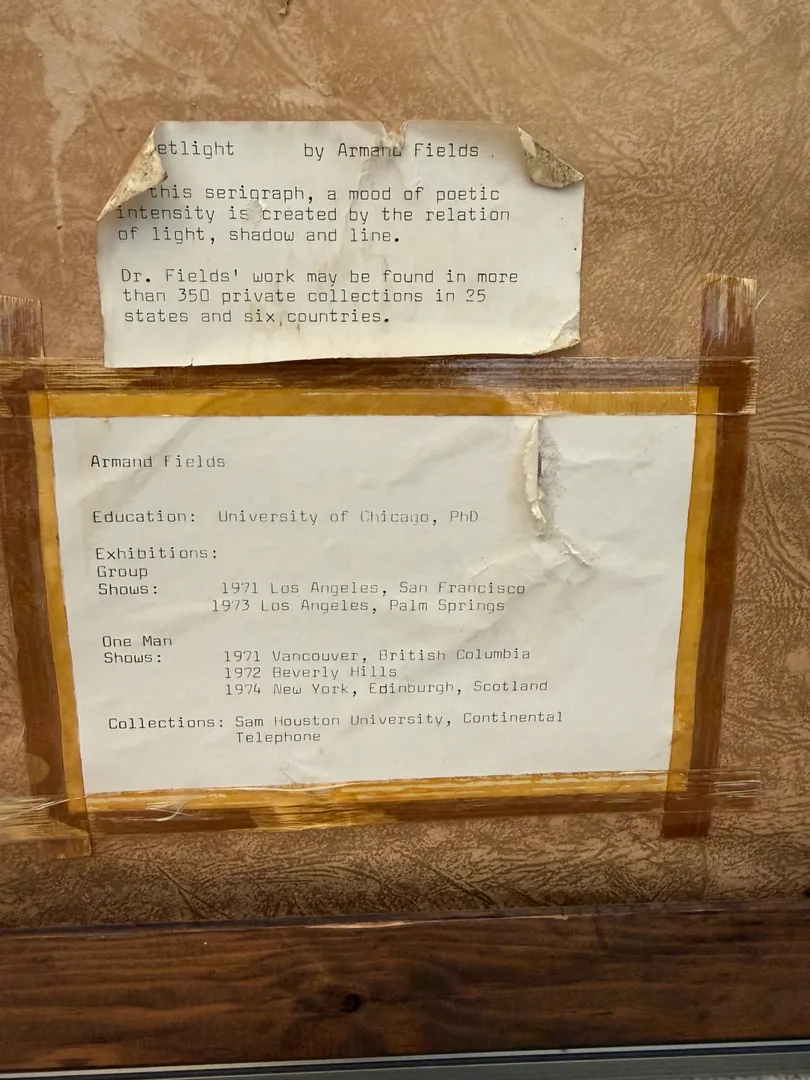 etlight by Armand Fields .
this serigraph, a mood of poetic
intensity is created by the relation
of light, shadow and line.
Dr. Fields' work may be found in more
than 350 private collections in 25
states and six countries.
Armand Fields
Education: University of Chicago, PhD
Exhibitions:
Group
Shows: 1971 Los Angeles, San Francisco
1973 Los Angeles, Palm Springs
One Man
Shows: 1971 Vancouver, British Columbia
1972 Beverly Hills
1974 New York, Edinburgh, Scotland
Collections: Sam Houston University, Continental
Telephone